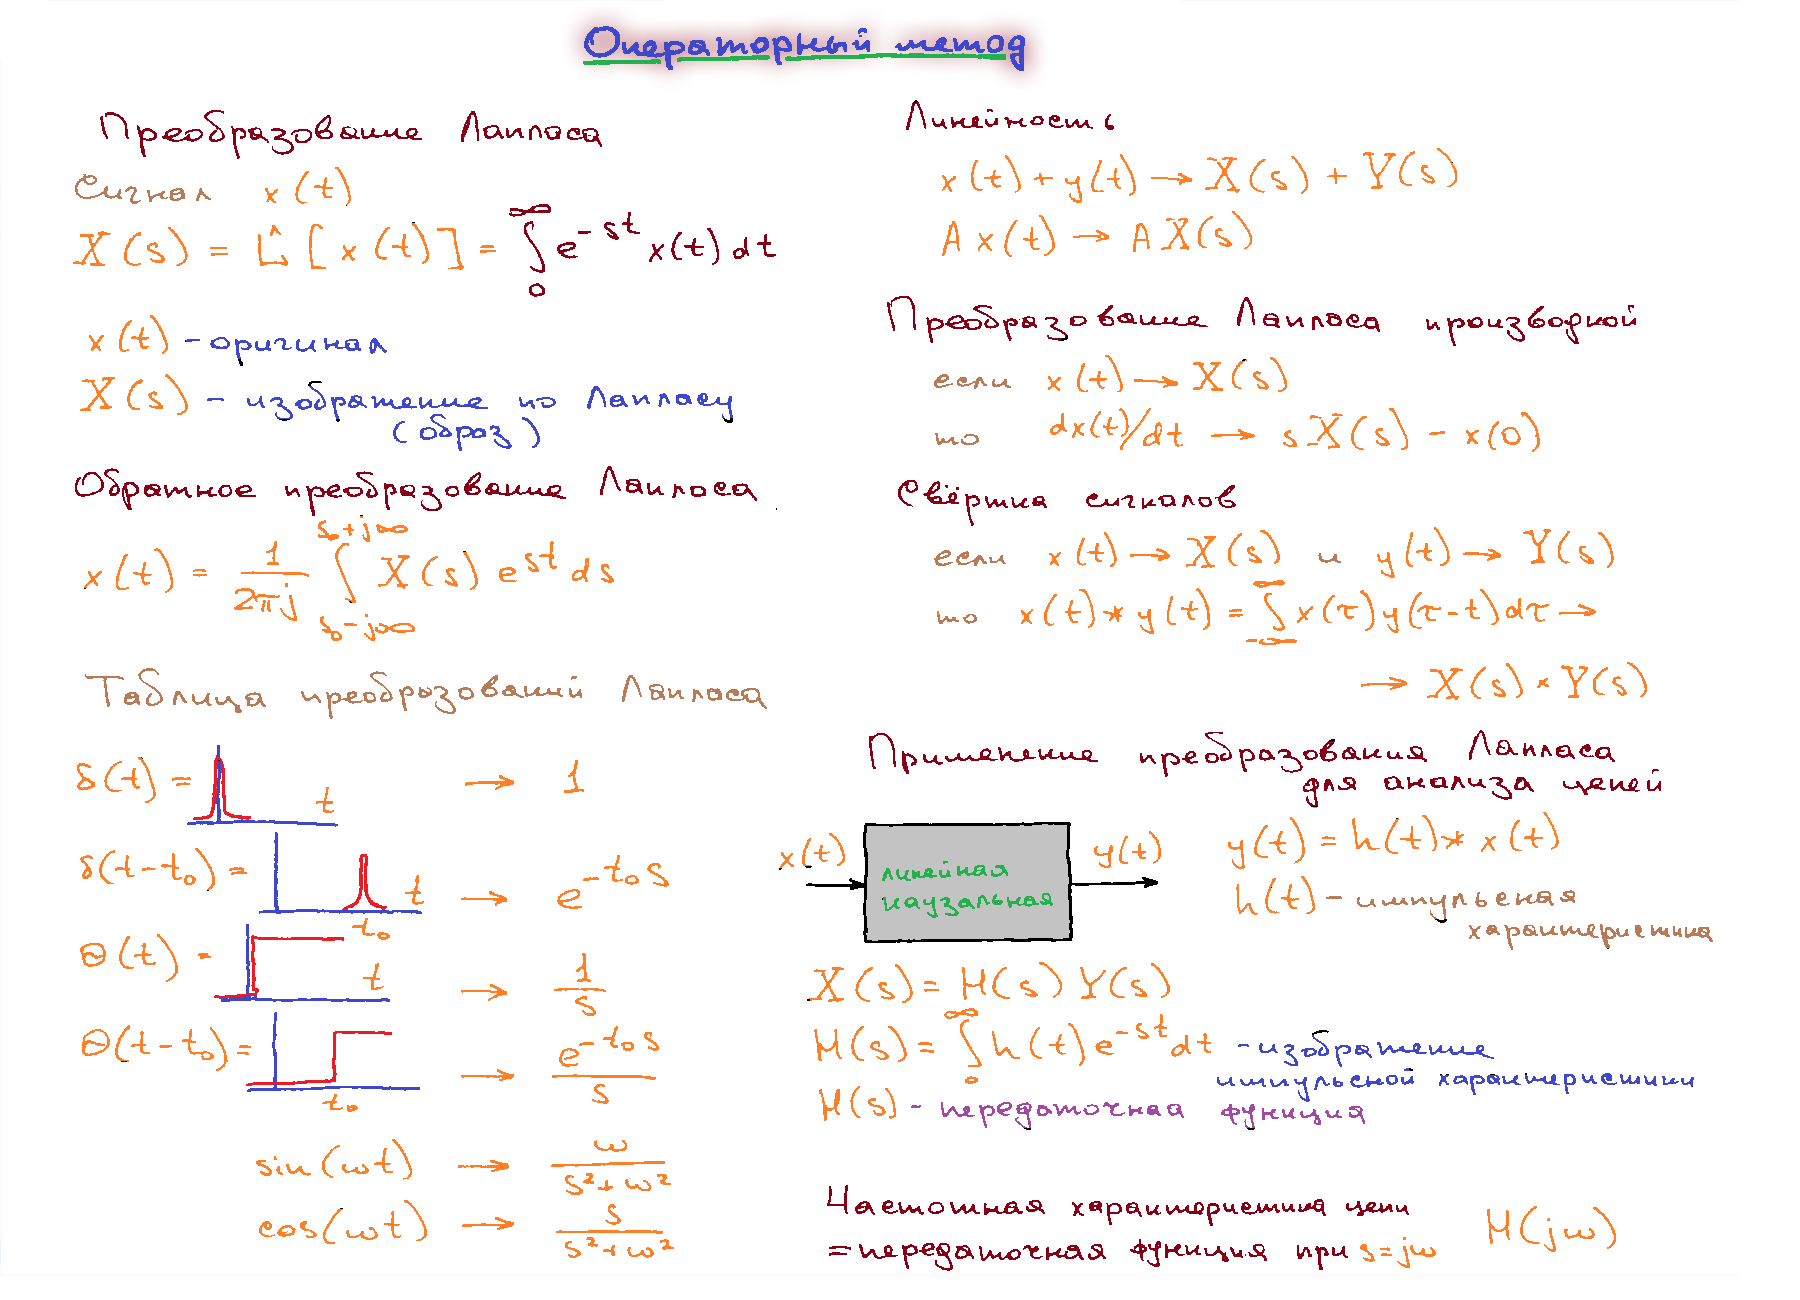 Операторный метод
Преобразование Лапласа
Сигнал x(t)
X(s) = L̂[x(t)] = ∫₀^∞ e^{-st} x(t) dt
x(t) - оригинал
X(s) - изображение по Лапласу
(образ)
Обратное преобразование Лапласа
x(t) = 1/(2πj) ∫_{s₀-j∞}^{s₀+j∞} X(s) e^{st} ds
Таблица преобразований Лапласа
δ(t) = t → 1
δ(t-t₀) = t t₀ → e^{-t₀s}
Θ(t) = t → 1/s
Θ(t-t₀) = t₀ → e^{-t₀s}/s
sin(ωt) → ω/(s²+ω²)
cos(ωt) → s/(s²+ω²)
Линейность
x(t) + y(t) → X(s) + Y(s)
A x(t) → A X(s)
Преобразование Лапласа производной
если x(t) → X(s)
то dx(t)/dt → sX(s) - x(0)
Свёртка сигналов
если x(t) → X(s) и y(t) → Y(s)
то x(t) * y(t) = ∫_{-∞}^{∞} x(τ) y(τ-t) dτ →
→ X(s) × Y(s)
Применение преобразования Лапласа
для анализа цепей
x(t) линейная y(t)
каузальная
y(t) = h(t) * x(t)
h(t) - импульсная
характеристика
X(s) = H(s) Y(s)
H(s) = ∫₀^∞ h(t) e^{-st} dt - изображение
импульсной характеристики
H(s) - передаточная функция
Частотная характеристика цепи
= передаточная функция при s = jω H(jω)